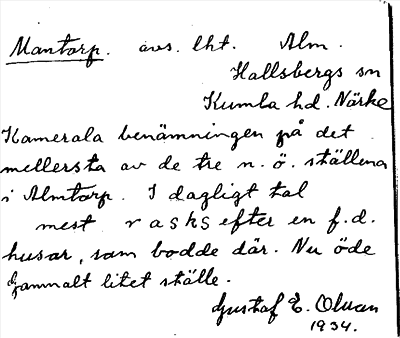 Mantorp. avs. lht. Alm.
Hallsbergs sn
Kumla hd. Närke
Kamerala benämningen på det
mellersta av de tre n. ö. ställena
i Almtorp. I dagligt tal
mest rasks efter en f.d.
husar, som bodde där. Nu öde
Gammalt litet ställe.
Gustaf E. Olsson
1934.